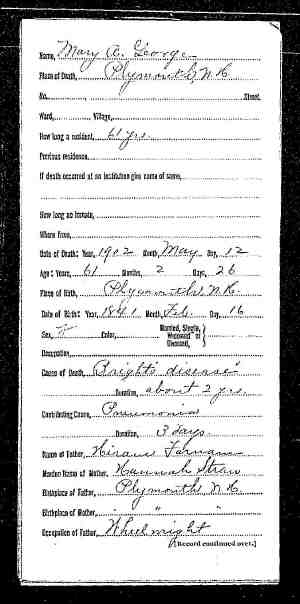 Name, Mary A. George
Place of Death, Plymouth, N.H.
No. Street.
Ward, Village,
How long a resident, 61 yrs
Previous residence,
If death occurred at an institution give name of same,
How long an inmate,
Where from,
Date of Death: Year, 1902 Month, May Day, 12
Age: Years, 61 Months, 2 Days, 26
Place of Birth, Plymouth, N.H.
Date of Birth: Year, 1841 Month, Feb. Day, 16
Sex, F Color, Married, Single, Widowed or Divorced,
Occupation
Cause of Death, Bright's disease
Duration, about 2 yrs.
Contributing Cause, Pneumonia
Duration, 3 days
Name of Father, Hiram
Maiden Name of Mother, Hannah
Birthplace of Father, Plymouth N.H.
Birthplace of Mother, " "
Occupation of Father, Wheelwright
[Record continued over.]